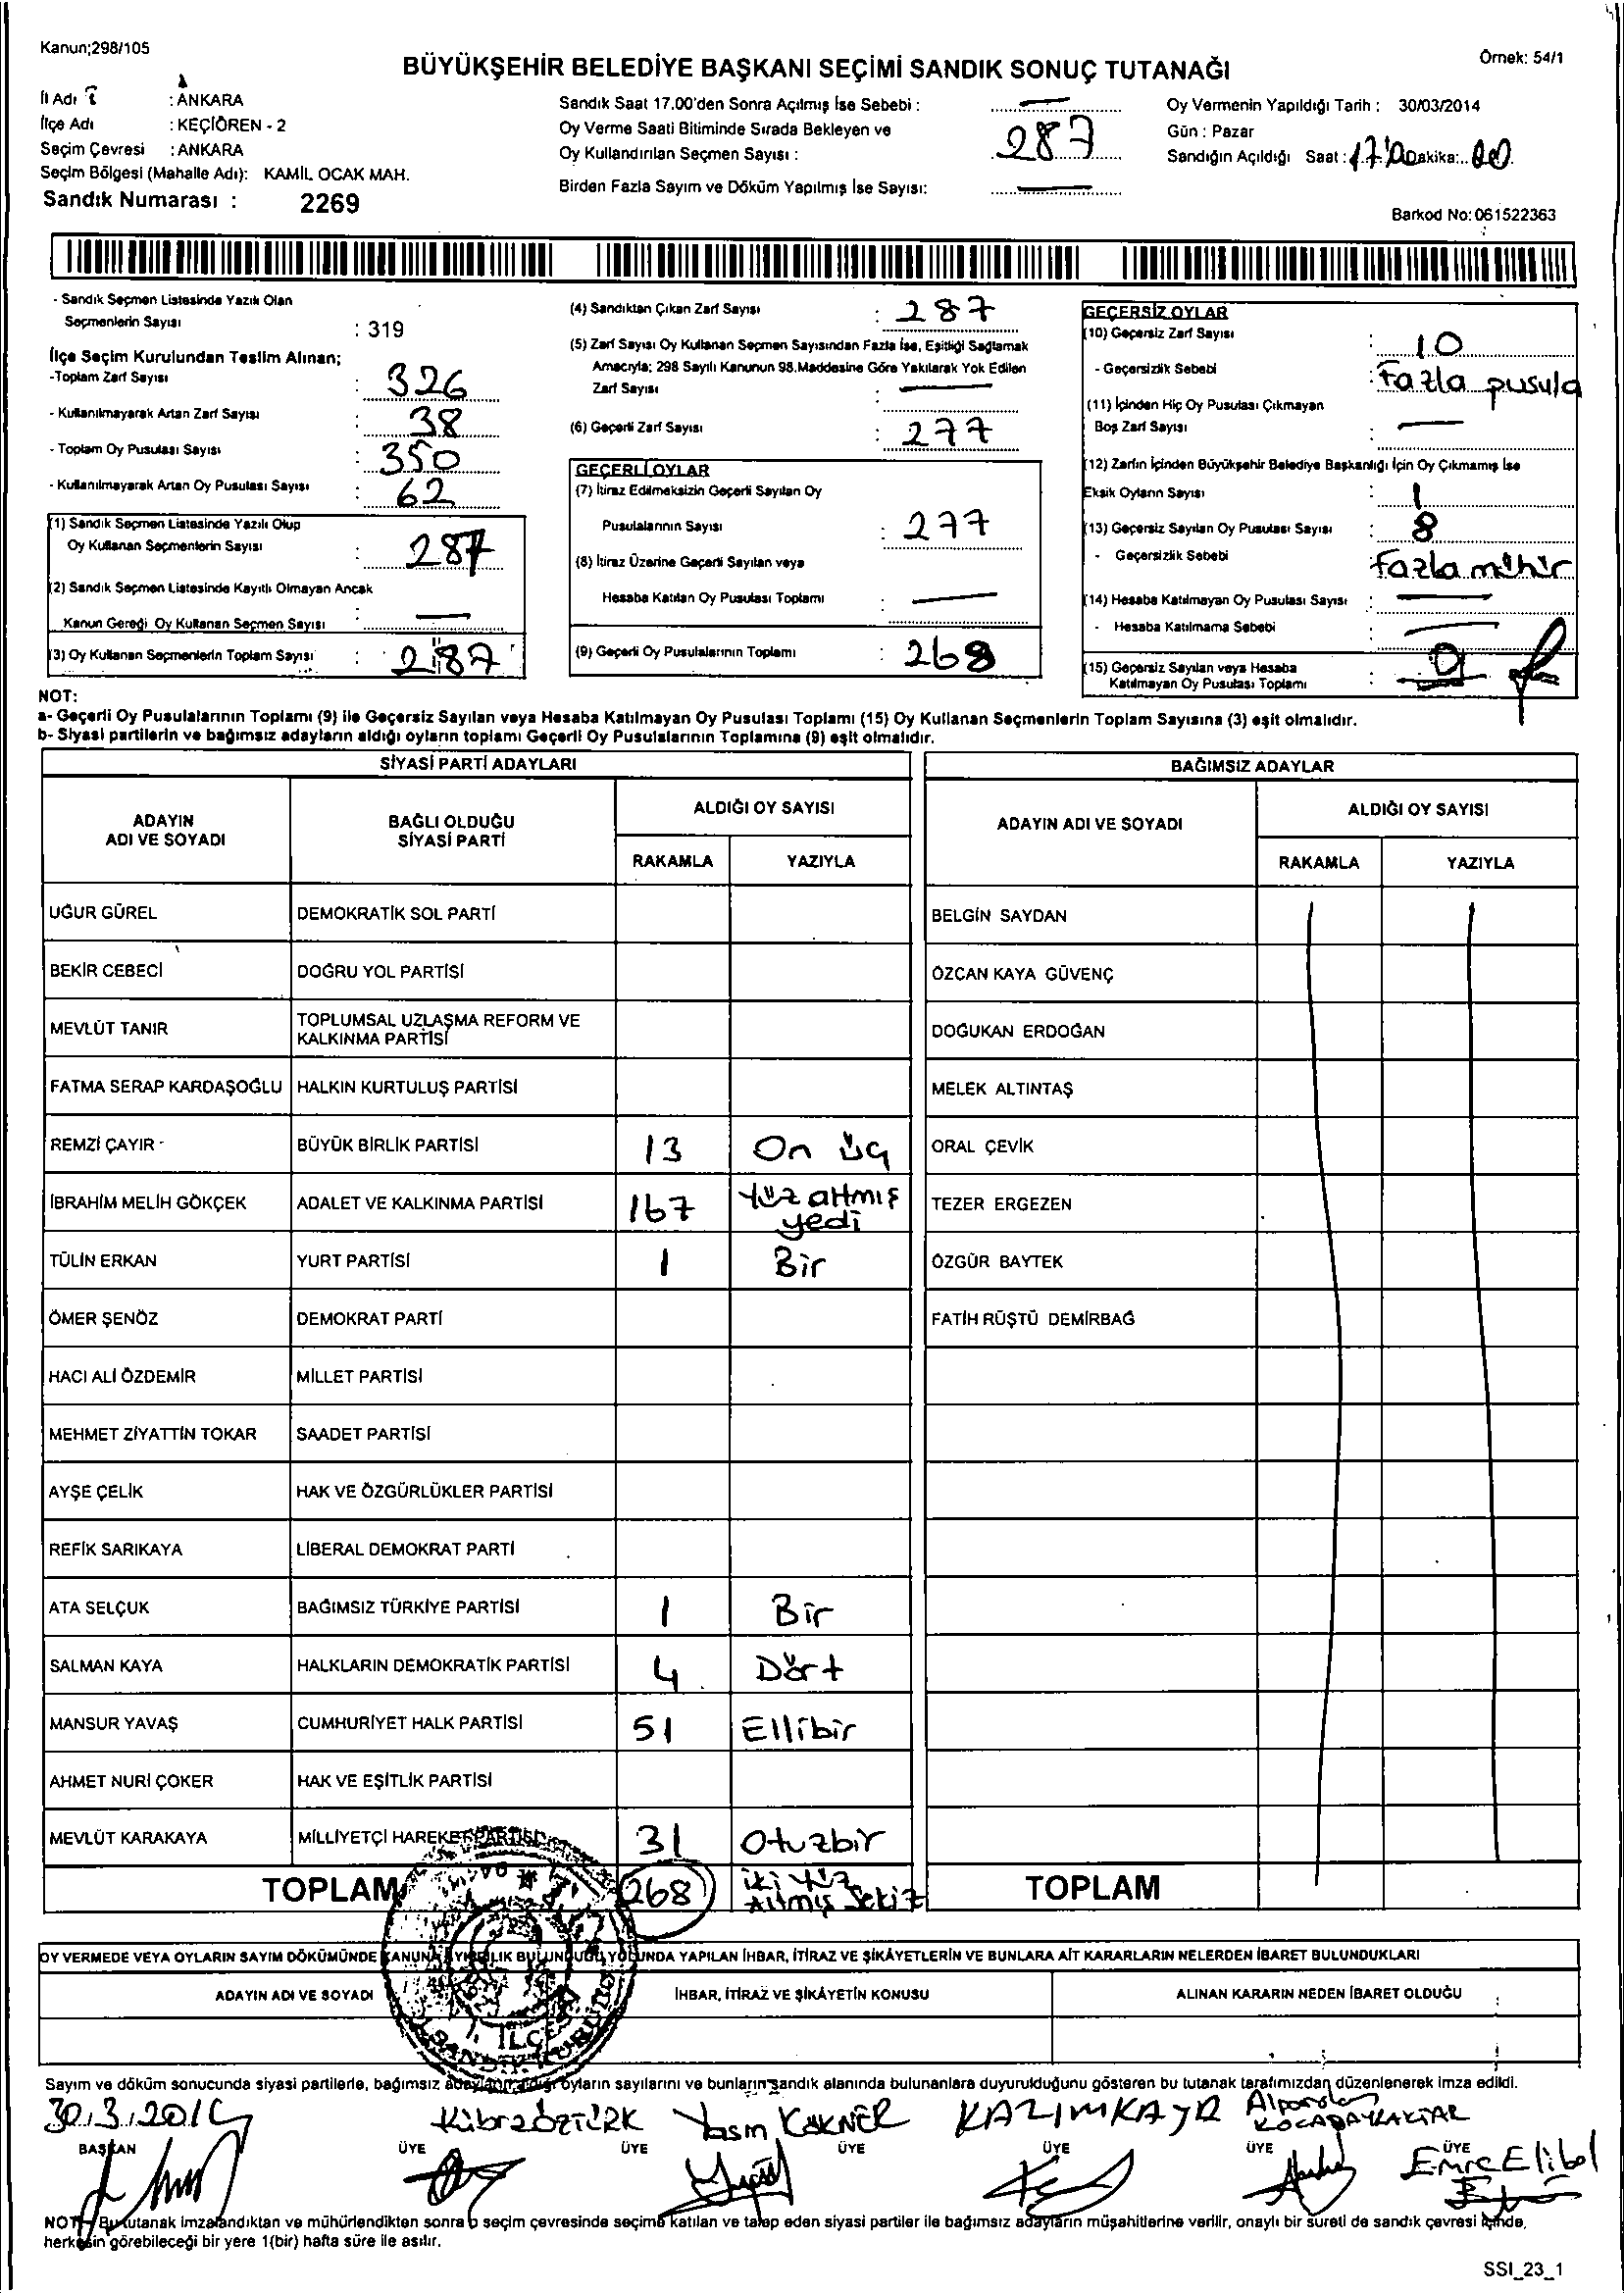 Kanun;298/105
BÜYÜKŞEHİR BELEDİYE BAŞKANI SEÇİMİ SANDIK SONUÇ TUTANAĞI
Örnek: 54/1
İl Adı : ANKARA
İlçe Adı : KEÇİÖREN - 2
Seçim Çevresi : ANKARA
Seçim Bölgesi (Mahalle Adı): KAMİL OCAK MAH.
Sandık Numarası : 2269
Sandık Saat 17.00'den Sonra Açılmış İse Sebebi :
Oy Verme Saati Bitiminde Sırada Bekleyen ve
Oy Kullandırılan Seçmen Sayısı : 287
Birden Fazla Sayım ve Döküm Yapılmış İse Sayısı:
Oy Vermenin Yapıldığı Tarih : 30/03/2014
Gün : Pazar
Sandığın Açıldığı Saat : 17:00 Dakika: 00
Barkod No: 061522363
- Sandık Seçmen Listesinde Yazılı Olan
Seçmenlerin Sayısı : 319
İlçe Seçim Kurulundan Teslim Alınan;
-Toplam Zarf Sayısı : 326
- Kullanılmayarak Artan Zarf Sayısı : 38
- Toplam Oy Pusulası Sayısı : 350
- Kullanılmayarak Artan Oy Pusulası Sayısı : 62
(1) Sandık Seçmen Listesinde Yazılı Olup
Oy Kullanan Seçmenlerin Sayısı : 287
(2) Sandık Seçmen Listesinde Kayıtlı Olmayan Ancak
Kanun Gereği Oy Kullanan Seçmen Sayısı :
(3) Oy Kullanan Seçmenlerin Toplam Sayısı : 287
(4) Sandıktan Çıkan Zarf Sayısı : 287
(5) Zarf Sayısı Oy Kullanan Seçmen Sayısından Fazla İse, Eşitliği Sağlamak
Amacıyla; 298 Sayılı Kanunun 98.Maddesine Göre Yakılarak Yok Edilen
Zarf Sayısı :
(6) Geçerli Zarf Sayısı : 277
GEÇERLİ OYLAR
(7) İtiraz Edilmeksizin Geçerli Sayılan Oy
Pusulalarının Sayısı : 277
(8) İtiraz Üzerine Geçerli Sayılan veya
Hesaba Katılan Oy Pusulası Toplamı :
(9) Geçerli Oy Pusulalarının Toplamı : 268
GEÇERSİZ OYLAR
(10) Geçersiz Zarf Sayısı : 10
- Geçersizlik Sebebi : Fazla pusula
(11) İçinden Hiç Oy Pusulası Çıkmayan
Boş Zarf Sayısı :
(12) Zarfın İçinden Büyükşehir Belediye Başkanlığı İçin Oy Çıkmamış İse
Eksik Oyların Sayısı : 1
(13) Geçersiz Sayılan Oy Pusulası Sayısı : 8
- Geçersizlik Sebebi Fazla mühür
(14) Hesaba Katılmayan Oy Pusulası Sayısı :
- Hesaba Katılmama Sebebi :
(15) Geçersiz Sayılan veya Hesaba
Katılmayan Oy Pusulası Toplamı :
NOT:
a- Geçerli Oy Pusulalarının Toplamı (9) ile Geçersiz Sayılan veya Hesaba Katılmayan Oy Pusulası Toplamı (15) Oy Kullanan Seçmenlerin Toplam Sayısına (3) eşit olmalıdır.
b- Siyasi partilerin ve bağımsız adayların aldığı oyların toplamı Geçerli Oy Pusulalarının Toplamına (9) eşit olmalıdır.
SİYASİ PARTİ ADAYLARI
ADAYIN ADI VE SOYADI
BAĞLI OLDUĞU SİYASİ PARTİ
ALDIĞI OY SAYISI
RAKAMLA YAZIYLA
UĞUR GÜREL DEMOKRATİK SOL PARTİ
BEKİR CEBECİ DOĞRU YOL PARTİSİ
MEVLÜT TANIR TOPLUMSAL UZLAŞMA REFORM VE KALKINMA PARTİSİ
FATMA SERAP KARDAŞOĞLU HALKIN KURTULUŞ PARTİSİ
REMZİ ÇAYIR BÜYÜK BİRLİK PARTİSİ 13 On üç
İBRAHİM MELİH GÖKÇEK ADALET VE KALKINMA PARTİSİ 167 Yüz altmış yedi
TÜLİN ERKAN YURT PARTİSİ 1 Bir
ÖMER ŞENÖZ DEMOKRAT PARTİ
HACI ALİ ÖZDEMİR MİLLET PARTİSİ
MEHMET ZİYATTİN TOKAR SAADET PARTİSİ
AYŞE ÇELİK HAK VE ÖZGÜRLÜKLER PARTİSİ
REFİK SARIKAYA LİBERAL DEMOKRAT PARTİ
ATA SELÇUK BAĞIMSIZ TÜRKİYE PARTİSİ 1 Bir
SALMAN KAYA HALKLARIN DEMOKRATİK PARTİSİ 4 Dört
MANSUR YAVAŞ CUMHURİYET HALK PARTİSİ 51 Ellibir
AHMET NURİ ÇOKER HAK VE EŞİTLİK PARTİSİ
MEVLÜT KARAKAYA MİLLİYETÇİ HAREKET PARTİSİ 31 Otuzbir
TOPLAM 268 iki yüz Altmış Sekiz
BAĞIMSIZ ADAYLAR
ADAYIN ADI VE SOYADI
ALDIĞI OY SAYISI
RAKAMLA YAZIYLA
BELGİN SAYDAN
ÖZCAN KAYA GÜVENÇ
DOĞUKAN ERDOĞAN
MELEK ALTINTAŞ
ORAL ÇEVİK
TEZER ERGEZEN
ÖZGÜR BAYTEK
FATİH RÜŞTÜ DEMİRBAĞ
TOPLAM
OY VERMEDE VEYA OYLARIN SAYIM DÖKÜMÜNDE KANUNA AYKIRILIK BULUNDUĞU YOLUNDA YAPILAN İHBAR, İTİRAZ VE ŞİKÂYETLERİN VE BUNLARA AİT KARARLARIN NELERDEN İBARET BULUNDUKLARI
ADAYIN ADI VE SOYADI
İHBAR, İTİRAZ VE ŞİKÂYETİN KONUSU
ALINAN KARARIN NEDEN İBARET OLDUĞU
İLÇE
Sayım ve döküm sonucunda siyasi partilerle, bağımsız adayların aldığı oyların sayılarını ve bunların sandık alanında bulunanlara duyurulduğunu gösteren bu tutanak tarafımızdan düzenlenerek imza edildi.
30.3.2014 Kübra ÖZTÜRK Yasin KÖKNER KAZIM KAYA Alparslan KOCABAYRAKTAR
BAŞKAN ÜYE ÜYE ÜYE ÜYE ÜYE ÜYE
Emre Elibol
NOT: Bu tutanak imzalandıktan ve mühürlendikten sonra o seçim çevresinde seçime katılan ve talep eden siyasi partiler ile bağımsız adayların müşahitlerine verilir, onaylı bir sureti de sandık çevresi içinde,
herkesin görebileceği bir yere 1(bir) hafta süre ile asılır.
SSI_23_1